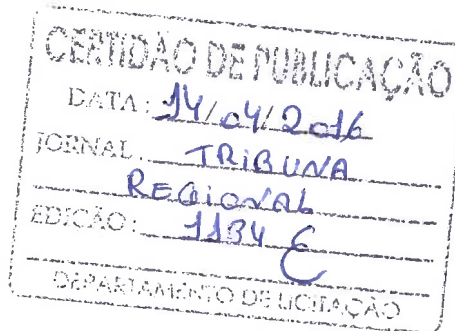 CERTIDÃO DE PUBLICAÇÃO
DATA: 14/04/2016
JORNAL: TRIBUNA
REGIONAL
EDIÇÃO: 1134 E
DEPARTAMENTO DE LICITAÇÃO